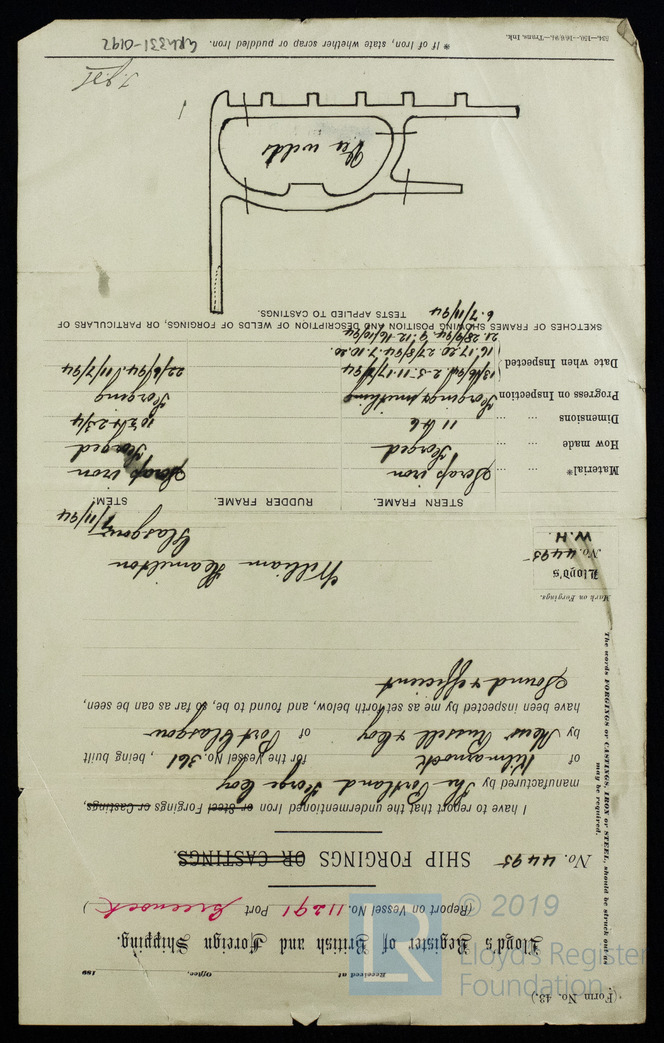 (Form No. 13.)
Received at Office, 189
Lloyd's Register of British and Foreign Shipping.
(Report on Vessel No. 11291 Port Greenock)
No. 4495 SHIP FORGINGS OR CASTINGS.
I have to report that the undermentioned Iron or Steel Forgings or Castings,
manufactured by The Portland Forge Coy
of Kilmarnock for the Vessel No. 361, being built
by Mess Russell & Coy of Port Glasgow
have been inspected by me as set forth below, and found to be, so far as can be seen,
Sound & efficient
The words FORGINGS or CASTINGS, IRON or STEEL, should be struck out as
may be required.
Mark on Forgings.
Lloyd's
No. 4495
W.H.
William Hamilton
Glasgow
7/11/94
STERN FRAME. RUDDER FRAME. STEM.
Material* Scrap iron Scrap iron
How made Forged Forged
Dimensions 11 x 6
Progress on Inspection Forging smithing Forging
Date when Inspected 22/6/94 11/7/94
6.7/11/94
SKETCHES OF FRAMES SHOWING POSITION AND DESCRIPTION OF WELDS OF FORGINGS, OR PARTICULARS OF
TESTS APPLIED TO CASTINGS.
Vee welds
* If of Iron, state whether scrap or puddled Iron.
GRK331-0192
534—150—16/6/91—Trans. Ink.
© 2019
Lloyd's Register
Foundation
LR